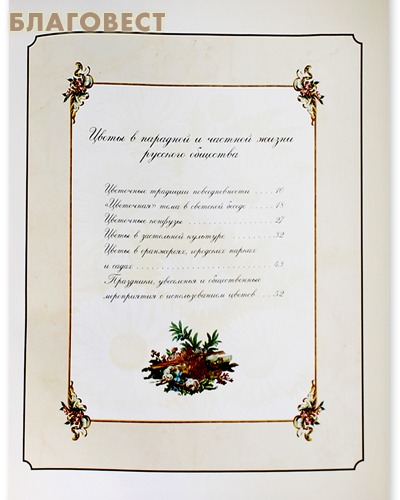 БЛАГОВЕСТ
Цветы в парадной и частной жизни
русского общества
Цветочные традиции повседневности .... 10
«Цветочная» тема в светской беседе ... 18
Цветочные конфузы ........ 27
Цветы в застольной культуре ...... 32
Цветы в оранжереях, городских парках
и садах ........ 43
Праздники, увеселения и общественные
мероприятия с использованием цветов ... 52